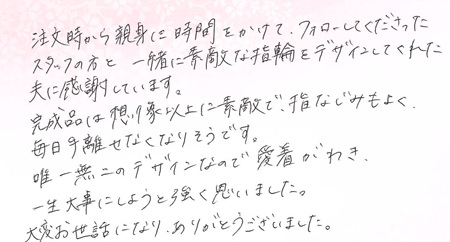 注文時から親身に時間をかけて、フォローしてくださった
スタッフの方と一緒に素敵な指輪をデザインしてくれた
夫に感謝しています。
完成品は想像以上に素敵で、指なじみもよく、
毎日手離せなくなりそうです。
唯一無二のデザインなので愛着がわき、
一生大事にしようと強く思いました。
大変お世話になり、ありがとうございました。